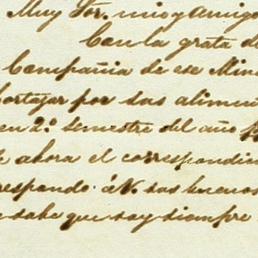 Muy Sor. mio y amigo
Con la grata de
Compañia de ese Mine
portajar por sus alimen
en 2.º semestre del año p
ahora el correspondien
respondo á V. sus buenos
sabe que soy siempre